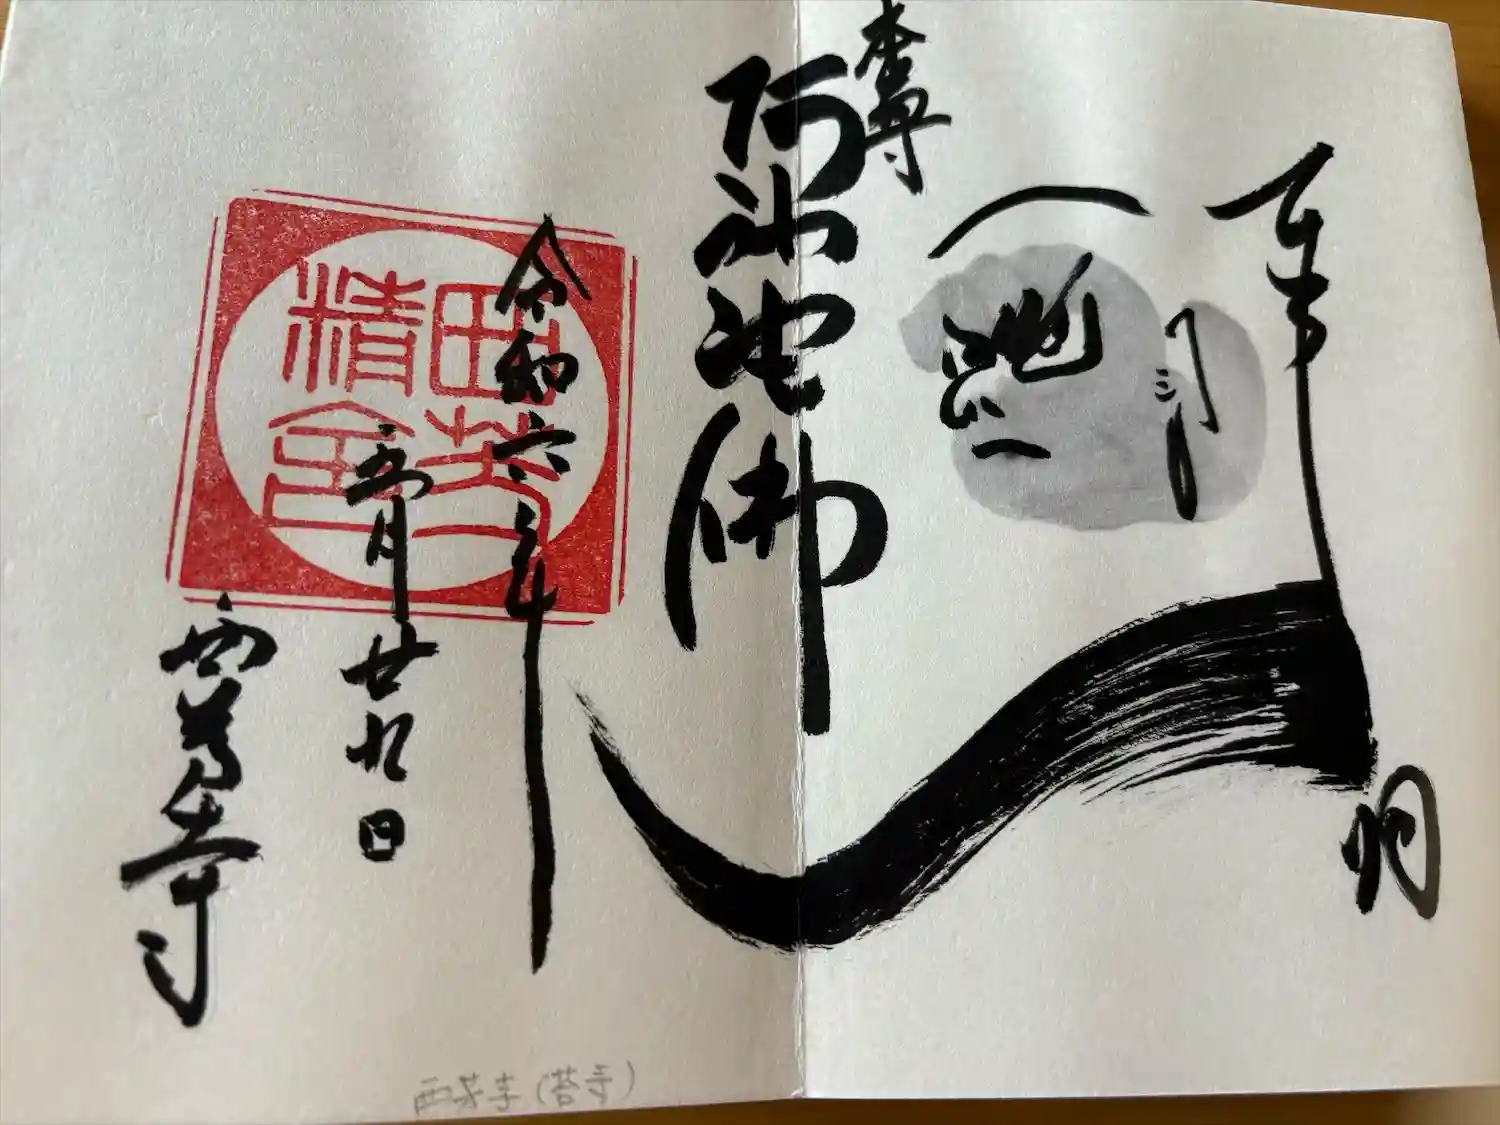 本尊
阿弥陀佛
令和六年
五月廿九日
西芳寺
西芳精舎
西芳寺(苔寺)